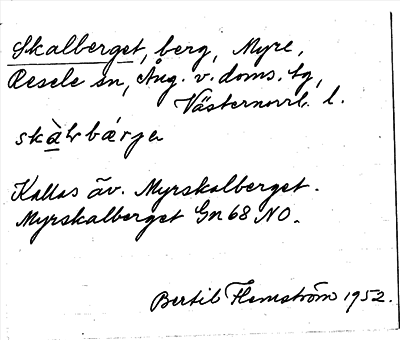 Skalberget, berg, Myre,
Resele sn, Ång. v. doms. tg,
Västernorrl. l.
Kallas äv. Myrskalberget.
Myrskalberget Gn 68 NO.
Bertil Flemström 1952.